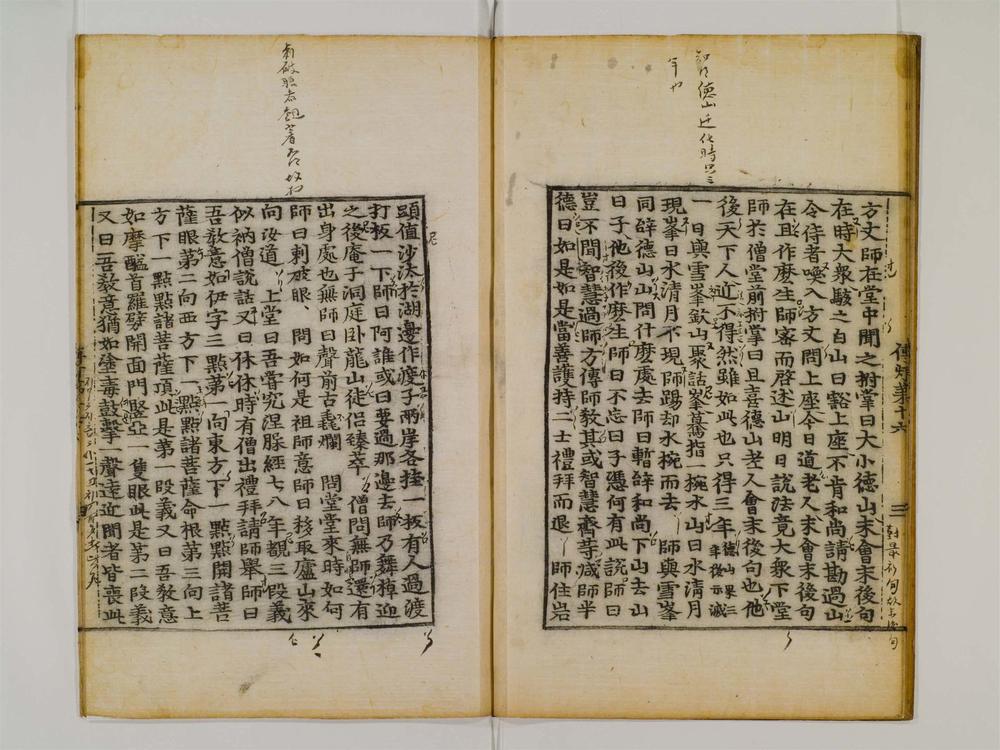 方丈師在堂中聞之拊掌曰大小德山未會末後句
在時大衆駭之白山曰豁上座不肯和尚請勘過山
令侍者喚入方丈問上座今日道老人未會末後句
在且作麽生師密而啓述山明日說法竟大衆下堂
師於僧堂前拊掌曰且喜德山老人會末後句也他
後天下人近不得然雖如此也只得三年德山果三年後示滅
一日與雪峯欽山聚話峯驀指一椀水山曰水清月
現峯曰水清月不現師踢却水椀而去　師與雪峯
同辝德山山問什麽處去師曰暫辝和尚下山去山
曰子他後作麽生師曰不忘曰子憑何有此說師曰
豈不聞智慧過師方傳師教其或智慧齊等減師半
德曰如是如是當善護持二士禮拜而退　師住岩
傳燈十六
三
頭值沙汰於湖邊作渡子兩岸各挂一板有人過渡
打板一下師曰阿誰或曰要過那邊去師乃舞棹迎
之後庵于洞庭卧龍山徒侶臻萃　僧問無師還有
出身處也無師曰聲前古毳爛　問堂堂來時如何
師曰刺破眼　問如何是祖師意師曰移取廬山來
向汝道　上堂曰吾嘗究涅脲經七八年覩三段義
似衲僧說話又曰休休時有僧出禮拜請師舉師曰
吾教意如伊字三點第一向東方下一點點開諸菩
薩眼第二向西方下一點點諸菩薩命根第三向上
方下一點點諸菩薩頂此是第一段義又曰吾教意
如摩醯首羅劈開面門竪亞一隻眼此是第二段義
又曰吾教意猶如塗毒鼓擊一聲遠近聞者皆喪此